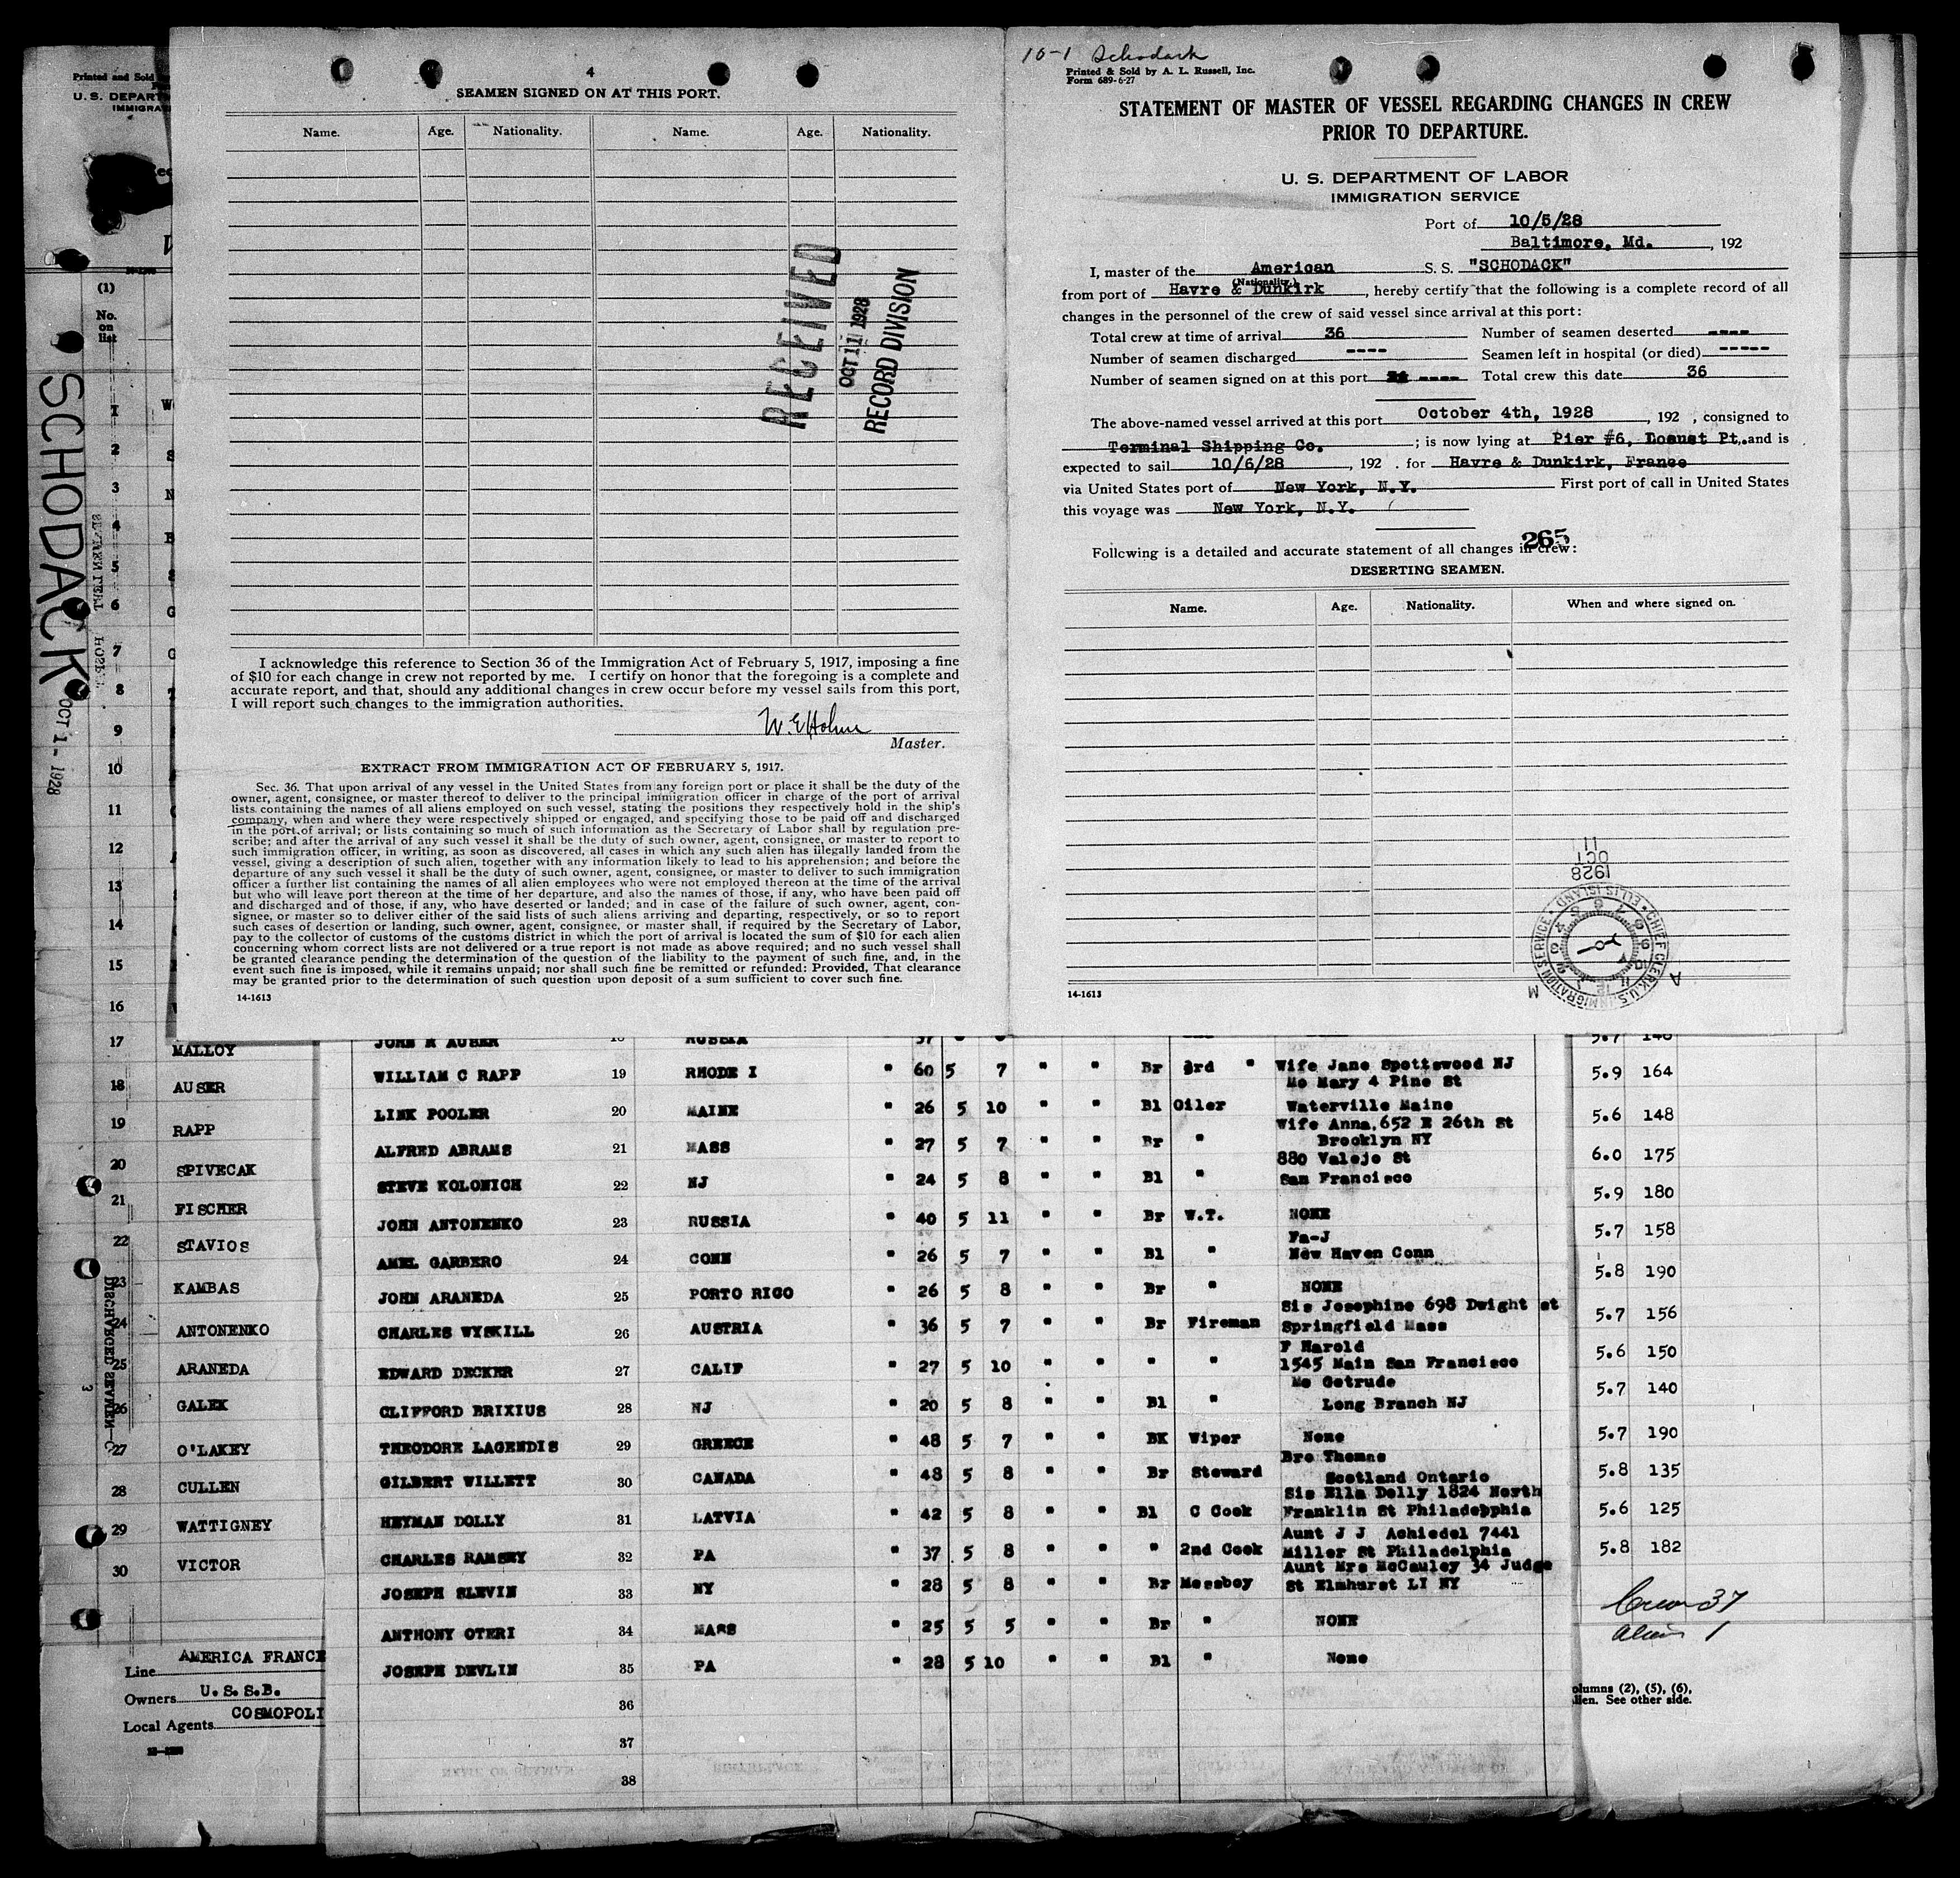 4
SEAMEN SIGNED ON AT THIS PORT.
Name. Age. Nationality. Name. Age. Nationality.
RECEIVED
OCT 11 1928
RECORD DIVISION
I acknowledge this reference to Section 36 of the Immigration Act of February 5, 1917, imposing a fine
of $10 for each change in crew not reported by me. I certify on honor that the foregoing is a complete and
accurate report, and that, should any additional changes in crew occur before my vessel sails from this port,
I will report such changes to the immigration authorities.
W. E. Holm
Master.
EXTRACT FROM IMMIGRATION ACT OF FEBRUARY 5, 1917.
Sec. 36. That upon arrival of any vessel in the United States from any foreign port or place it shall be the duty of the
owner, agent, consignee, or master thereof to deliver to the principal immigration officer in charge of the port of arrival
lists containing the names of all aliens employed on such vessel, stating the positions they respectively hold in the ship's
company, when and where they were respectively shipped or engaged, and specifying those to be paid off and discharged
in the port of arrival; or lists containing so much of such information as the Secretary of Labor shall by regulation pre-
scribe; and after the arrival of any such vessel it shall be the duty of such owner, agent, consignee, or master to report to
such immigration officer, in writing, as soon as discovered, all cases in which any such alien has illegally landed from the
vessel, giving a description of such alien, together with any information likely to lead to his apprehension; and before the
departure of any such vessel it shall be the duty of such owner, agent, consignee, or master to deliver to such immigration
officer a further list containing the names of all alien employees who were not employed thereon at the time of the arrival
but who will leave port thereon at the time of her departure, and also the names of those, if any, who have been paid off
and discharged and of those, if any, who have deserted or landed; and in case of the failure of such owner, agent, con-
signee, or master so to deliver either of the said lists of such aliens arriving and departing, respectively, or so to report
such cases of desertion or landing, such owner, agent, consignee, or master shall, if required by the Secretary of Labor,
pay to the collector of customs of the customs district in which the port of arrival is located the sum of $10 for each alien
concerning whom correct lists are not delivered or a true report is not made as above required; and no such vessel shall
be granted clearance pending the determination of the question of the liability to the payment of such fine, and, in the
event such fine is imposed, while it remains unpaid; nor shall such fine be remitted or refunded: Provided, That clearance
may be granted prior to the determination of such question upon deposit of a sum sufficient to cover such fine.
14-1613
10-1 Schodack
Printed & Sold by A. L. Russell, Inc.
Form 689-6-27
STATEMENT OF MASTER OF VESSEL REGARDING CHANGES IN CREW
PRIOR TO DEPARTURE.
U. S. DEPARTMENT OF LABOR
IMMIGRATION SERVICE
Port of 10/5/28
Baltimore, Md. , 192
I, master of the American S. S. "SCHODACK"
(Nationality.)
from port of Havre & Dunkirk , hereby certify that the following is a complete record of all
changes in the personnel of the crew of said vessel since arrival at this port:
Total crew at time of arrival 36 Number of seamen deserted ----
Number of seamen discharged ---- Seamen left in hospital (or died) -----
Number of seamen signed on at this port ---- Total crew this date 36
The above-named vessel arrived at this port October 4th, 1928 , 192 , consigned to
Terminal Shipping Co. ; is now lying at Pier #6, Locust Pt. and is
expected to sail 10/6/28 , 192 . for Havre & Dunkirk, France
via United States port of New York, N.Y. First port of call in United States
this voyage was New York, N.Y.
265
Following is a detailed and accurate statement of all changes in crew:
DESERTING SEAMEN.
Name. Age. Nationality. When and where signed on.
11
OCT
1928
CHIEF CLERK, U.S. IMMIGRATION SERVICE • ELLIS ISLAND •
A M
14-1613
Printed and Sold
U. S. DEPART
IMMIGRA
(1)
No.
on
list
SCHODACK
OCT 1- 1928
DISCHARGED SEAMEN—C
3
1
2
3
4
5
6
7
8
9
10
11
12
13
14
15
16
17 MALLOY
18 AUSER
19 RAPP
20 SPIVECAK
21 FISCHER
22 STAVIOS
23 KAMBAS
24 ANTONENKO
25 ARANEDA
26 GALEK
27 O'LAKEY
28 CULLEN
29 WATTIGNEY
30 VICTOR
Line AMERICA FRANCE
Owners U.S.S.B.
Local Agents COSMOPOLI
JOHN R AUSER 18 RUSSIA 37
WILLIAM C RAPP 19 RHODE I " 60 5 7 " " Br 3rd " Wife Jane Spottswood NJ
Mo Mary 4 Pine St
LINK POOLER 20 MAINE " 26 5 10 " " Bl Oiler Waterville Maine
Wife Anna, 652 E 26th St
ALFRED ABRAMS 21 MASS " 27 5 7 " " Br " Brooklyn NY
880 Valejo St
STEVE KOLONICH 22 NJ " 24 5 8 " " Bl " San Francisco
JOHN ANTONENKO 23 RUSSIA " 40 5 11 " " Br W.T. NONE
Fa-J
AMEL GARBERO 24 CONN " 26 5 7 " " Bl " New Haven Conn
JOHN ARANEDA 25 PORTO RICO " 26 5 8 " " Br " NONE
Sis Josephine 698 Dwight st
CHARLES WYSKILL 26 AUSTRIA " 36 5 7 " " Br Fireman Springfield Mass
F Harold
EDWARD DECKER 27 CALIF " 27 5 10 " " " " 1545 Main San Francisco
Mo Getrude
CLIFFORD BRIXIUS 28 NJ " 20 5 8 " " Bl " Long Branch NJ
THEODORE LAGENDIS 29 GREECE " 48 5 7 " " BK Wiper None
Bro Thomas
GILBERT WILLETT 30 CANADA " 48 5 8 " " Br Steward Scotland Ontario
Sis Ella Dolly 1824 North
HEYMAN DOLLY 31 LATVIA " 42 5 8 " " Bl C Cook Franklin St Philadepphia
Aunt J J Achiedel 7441
CHARLES RAMSEY 32 PA " 37 5 8 " " " 2nd Cook Miller St Philadelphia
Aunt Mrs McCauley 34 Judge
JOSEPH SLEVIN 33 NY " 28 5 8 " " Br Messboy St Elmhurst LI NY
ANTHONY OTERI 34 MASS " 25 5 5 " " Br " NONE
JOSEPH DEVLIN 35 PA " 28 5 10 " " Bl " None
36
37
38
5.7 140
5.9 164
5.6 148
6.0 175
5.9 180
5.7 158
5.8 190
5.7 156
5.6 150
5.7 140
5.7 190
5.8 135
5.6 125
5.8 182
Crew 37
Alien 1
olumns (2), (5), (6),
lien. See other side.